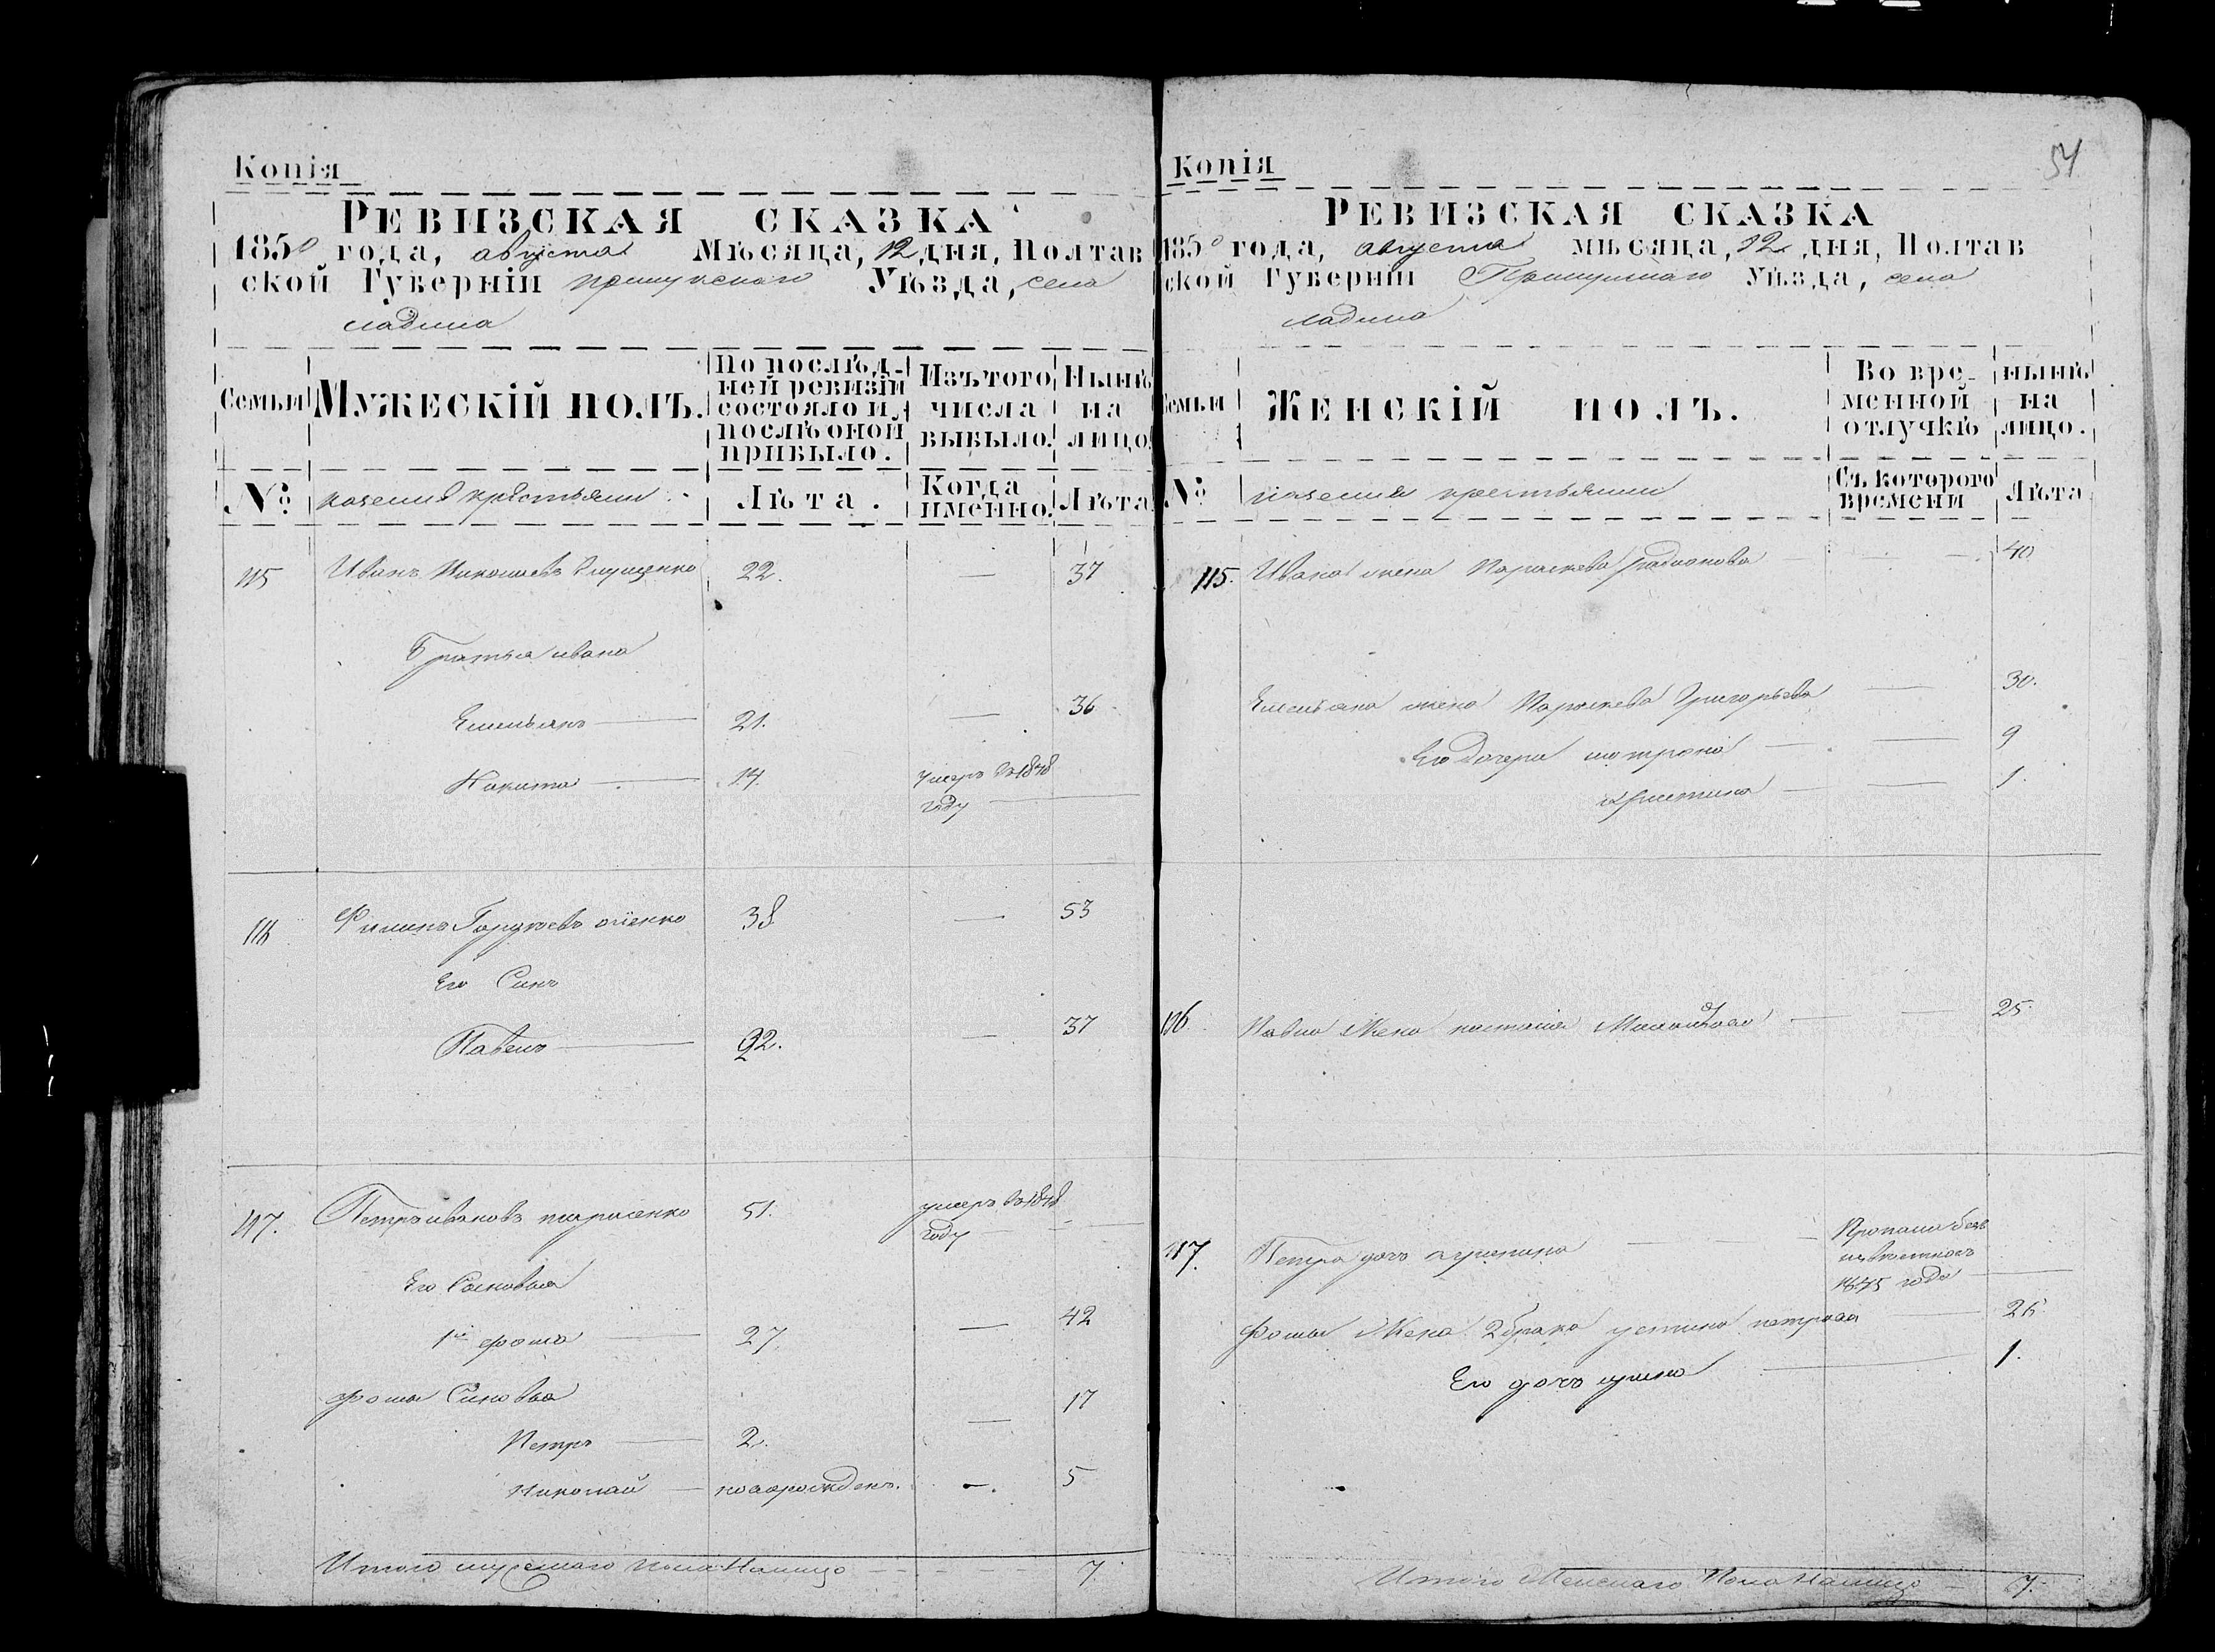 Копія
РЕВИЗСКАЯ СКАЗКА
1850 года, августа Мѣсяца, 12 дня, Полтав
ской Губерніи прилукскаго Уѣзда, села
ладина
Семьи
МУЖЕСКІЙ ПОЛЪ.
По послѣд-
ней ревизіи
состояло и
послѣ оной
прибыло.
Изъ того
числа
выбыло.
Нынѣ
на
лицо.
№
казения крестьяни
Лѣта.
Когда
именно.
Лѣта
115 Иванъ Николаевъ 22. — 37
Братья ивана
Емельянъ — 21. — 36
Никита — 14. умеръ въ 1848
году —
116 Филипъ 38 — 53
Его Синъ
Павелъ — 22. — 37
117. Петръ ивановъ тарасенко 51. умеръ въ 1848
году —
Его Сыновья
1й фома — 27 — 42
фомы Синовья
Петръ — 2. — 17
Николай — новорожденъ. —. 5
Итого мужескаго пола Налицо 7.
Копія
54
РЕВИЗСКАЯ СКАЗКА
1850 года, августа мѣсяца, 12 дня, Полтав
ской Губерніи Прилуцкаго Уѣзда, села
ладина
Семьи
ЖЕНСКІЙ ПОЛЪ.
Во вре-
менной
отлучкѣ
нынѣ
на
лицо.
№
казения крестьянии
Съ котораго
времени
Лѣта
115. Ивана жена Параскева радионова — 40
Емельяна жена Параскева Григорьева — 30.
Его дочери мотрона — 9
Христина — 1.
116. Павла Жена настасия — 25.
117. Петра дочъ — Пропала безъ
1845 года —
фомы Жена 2 брака устина петрова — 26.
Его дочъ — 1.
Итого Женскаго Пола Налицо — 7.